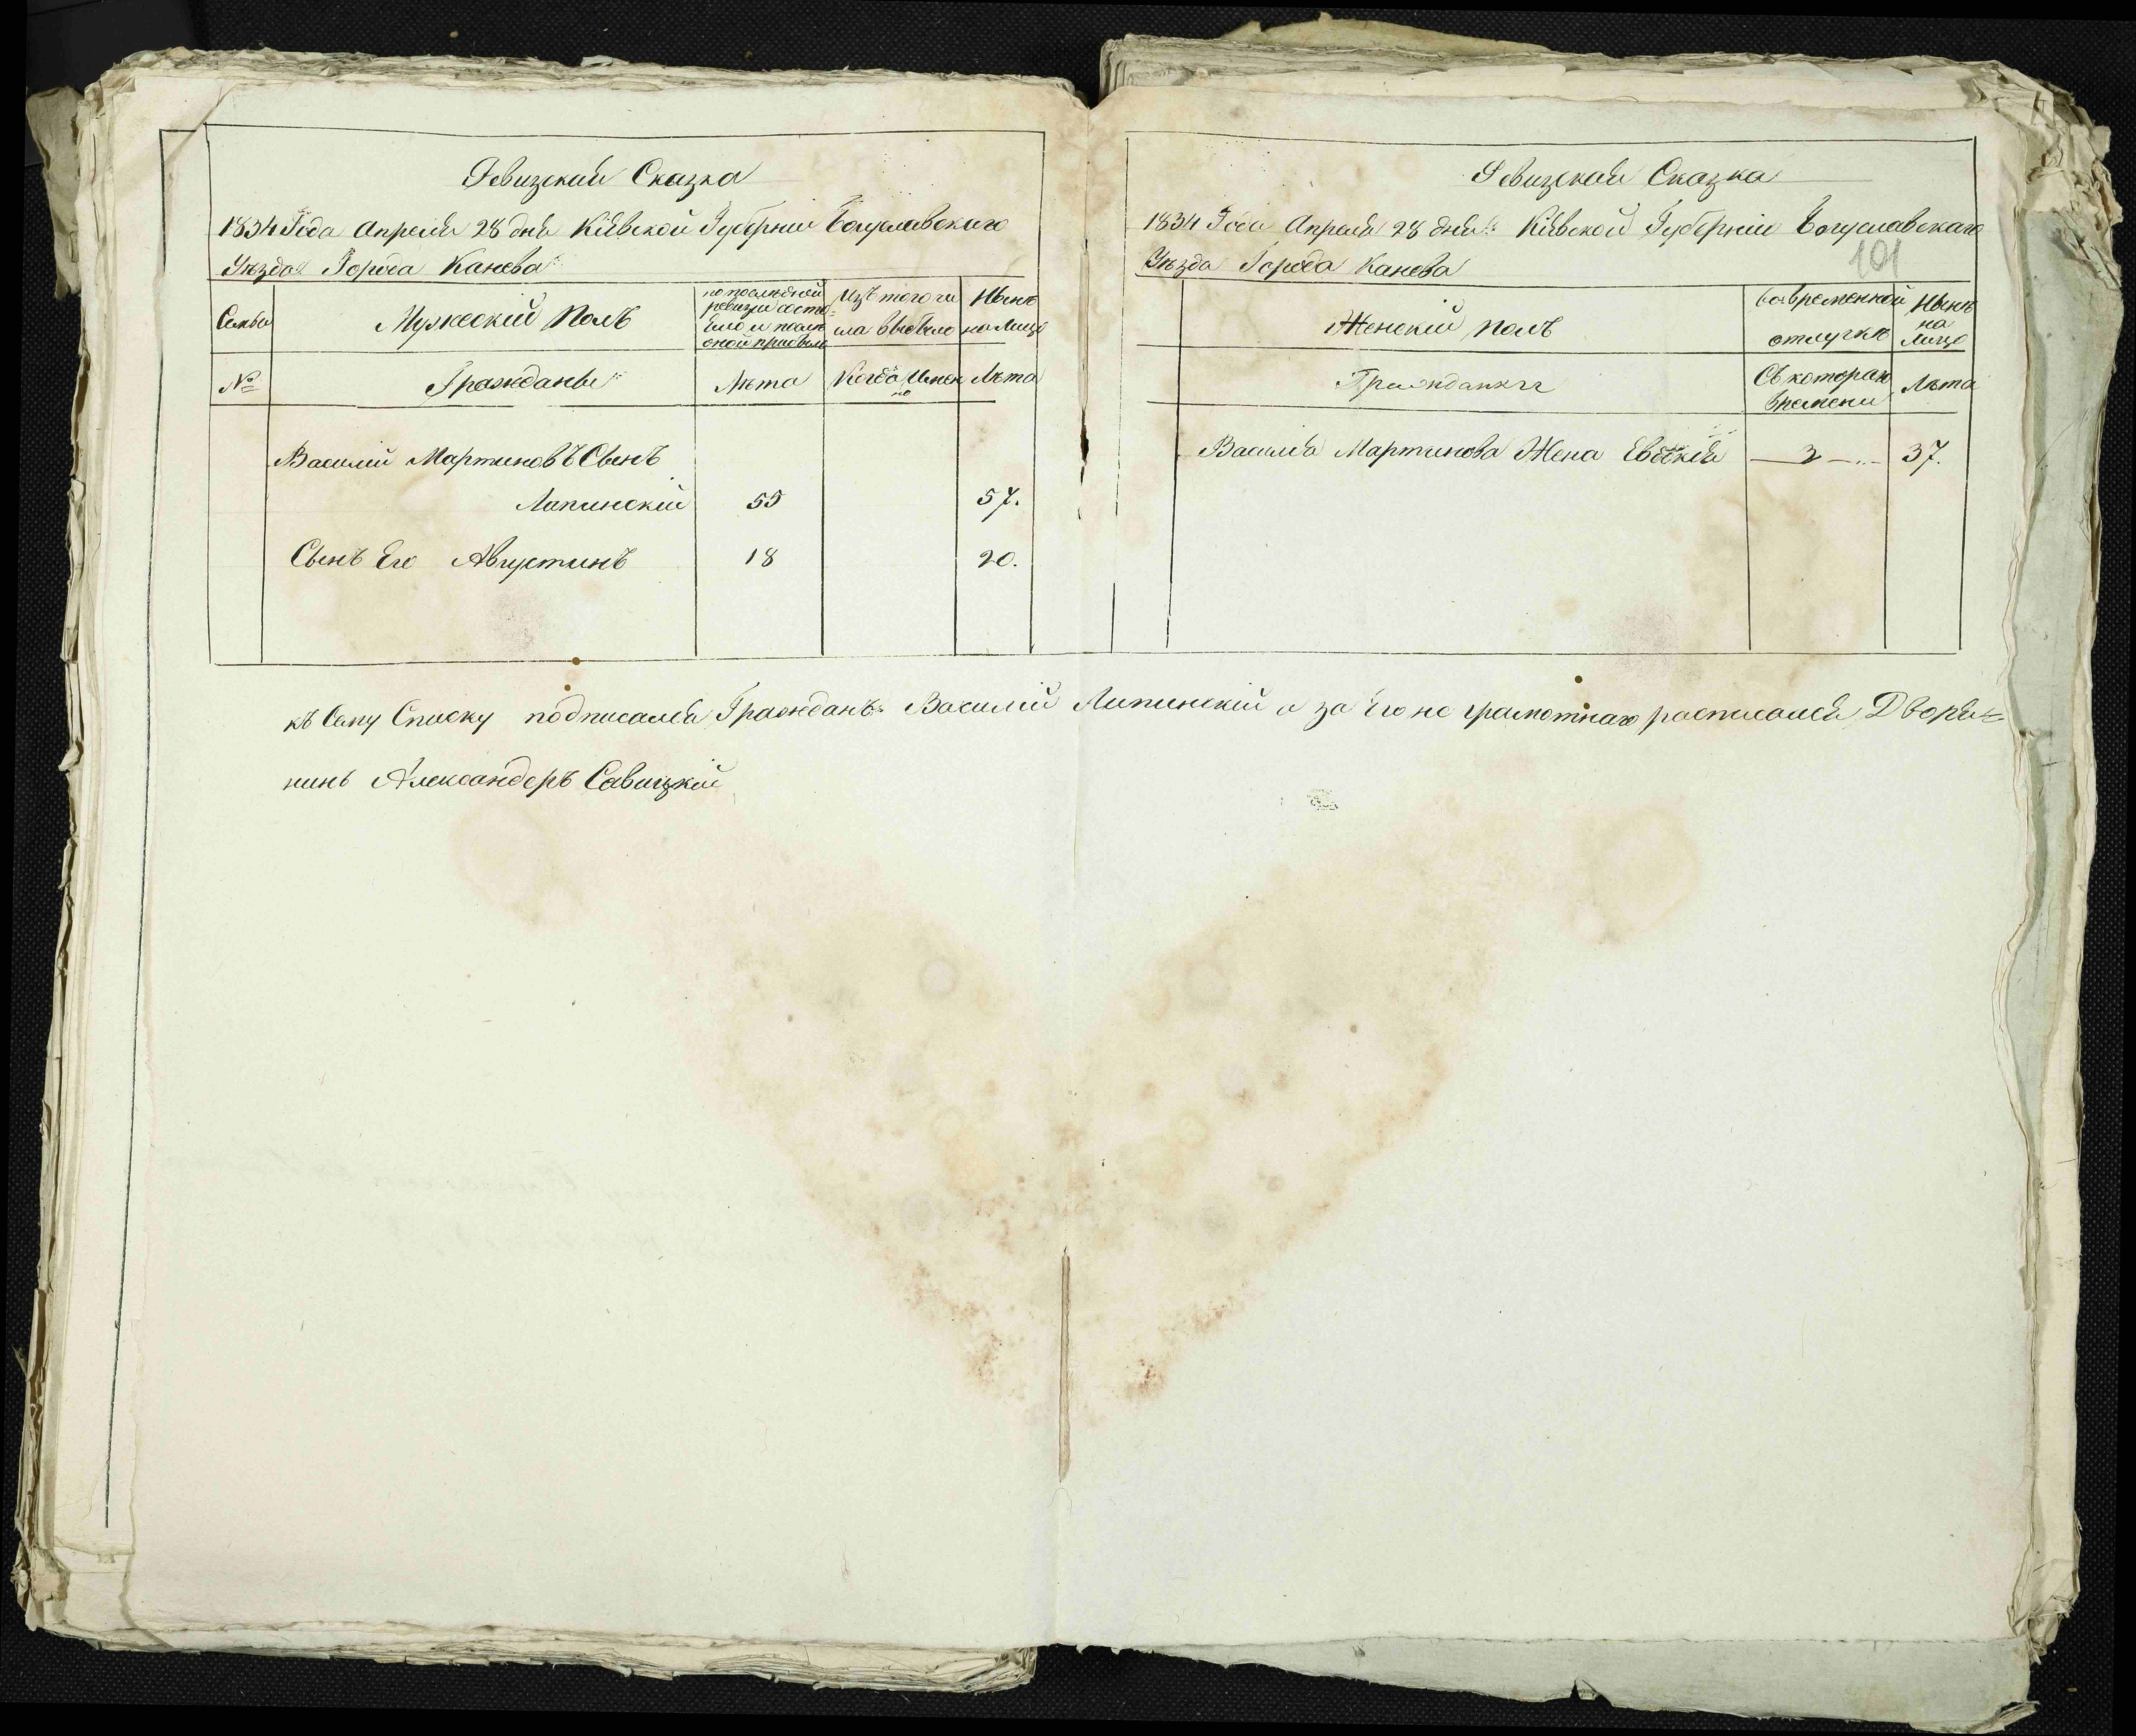 Ревизская Сказка
1834 Года Апреля 28 дня Кіевской Губерніи Богуславского
Уѣзда Города Канева
Семьи
Мужеский Полъ
по последней ревизіи состо
яло и после
оной прибыло
Изъ того чи
сла выбыло
Нынѣ
на Лицо
№
Граждане
Лѣта
Когда Имен
но
Лѣта
Василий Мартиновъ Сынъ
Лапинский 55 57.
Сынъ Его Августинъ 18 20.
Ревизская Сказка
1834 Года Апреля 28 дня Кіевской Губерніи Богуславскаго
101
Уѣзда Города Канева
Женский полъ
Во временной
отлучкѣ
Нынѣ
на
Лицо
Гражданки
Съ котораго
времени
Лѣта
Василия Мартинова Жена Евдокія 37.
къ Сему Списку подписался Гражданъ Василий Липинский а за его не грамотнаго росписался Дворя-
нинъ Александеръ Савицкий